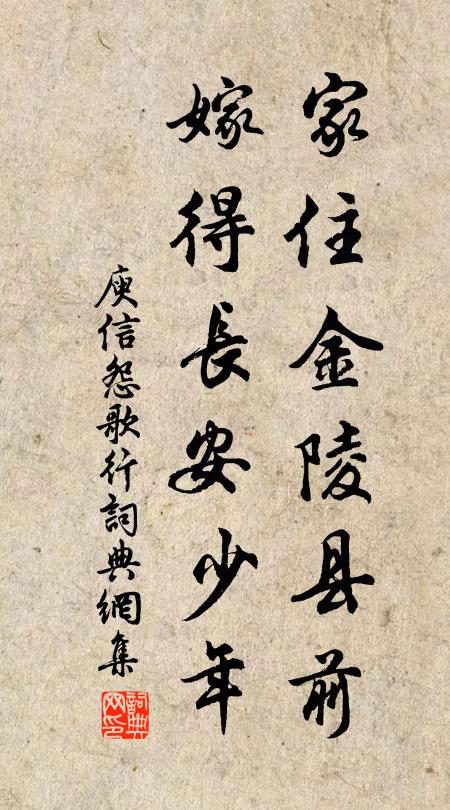 家住金陵县前
嫁得長安少年
庾信怨歌行詞典網集
詞典网印